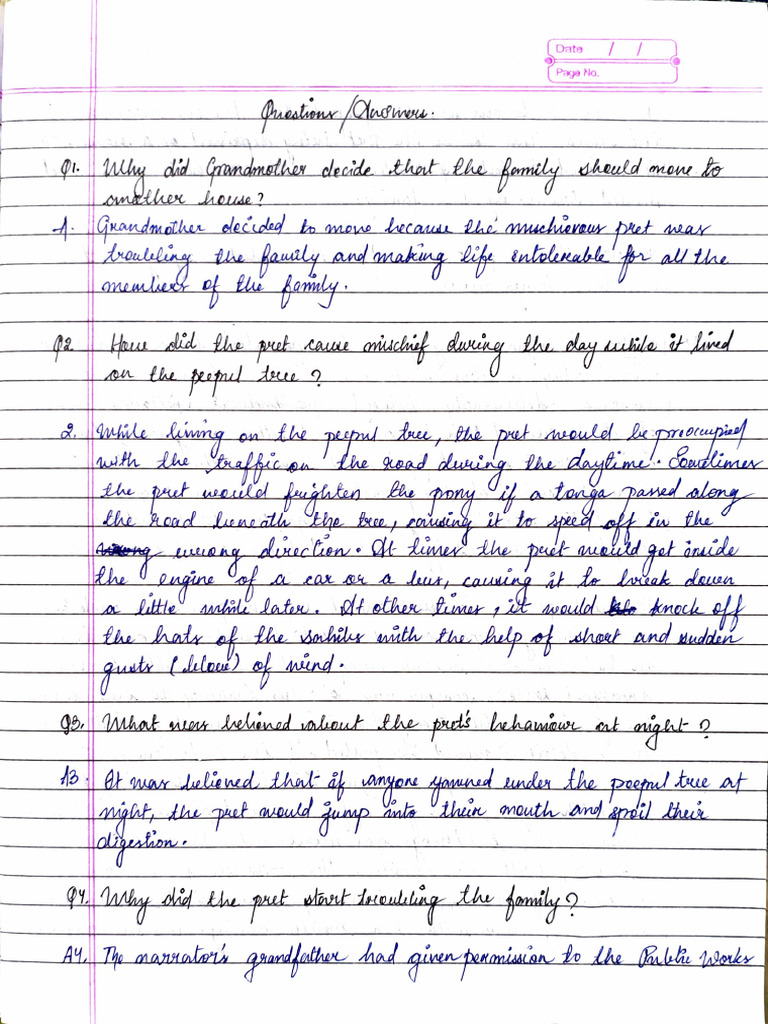 Date / /
Page No.
Questions/Answers.
Q1. Why did Grandmother decide that the family should move to
another house?
1. Grandmother decided to move because the mischievous pret was
troubling the family and making life intolerable for all the
members of the family.
Q2 How did the pret cause mischief during the day while it lived
on the peepul tree?
2. While living on the peepul tree, the pret would be preoccupied
with the traffic on the road during the daytime. Sometimes
the pret would frighten the pony if a tonga passed along
the road beneath the tree, causing it to speed off in the
wrong direction. At times the pret would get inside
the engine of a car or a bus, causing it to break down
a little while later. At other times, it would knock off
the hats of the sahibs with the help of short and sudden
gusts (blow) of wind.
Q3. What was believed about the pret's behaviour at night?
A3. It was believed that if anyone yawned under the peepul tree at
night, the pret would jump into their mouth and spoil their
digestion.
Q4. Why did the pret start troubling the family?
A4. The narrator's grandfather had given permission to the Public Works